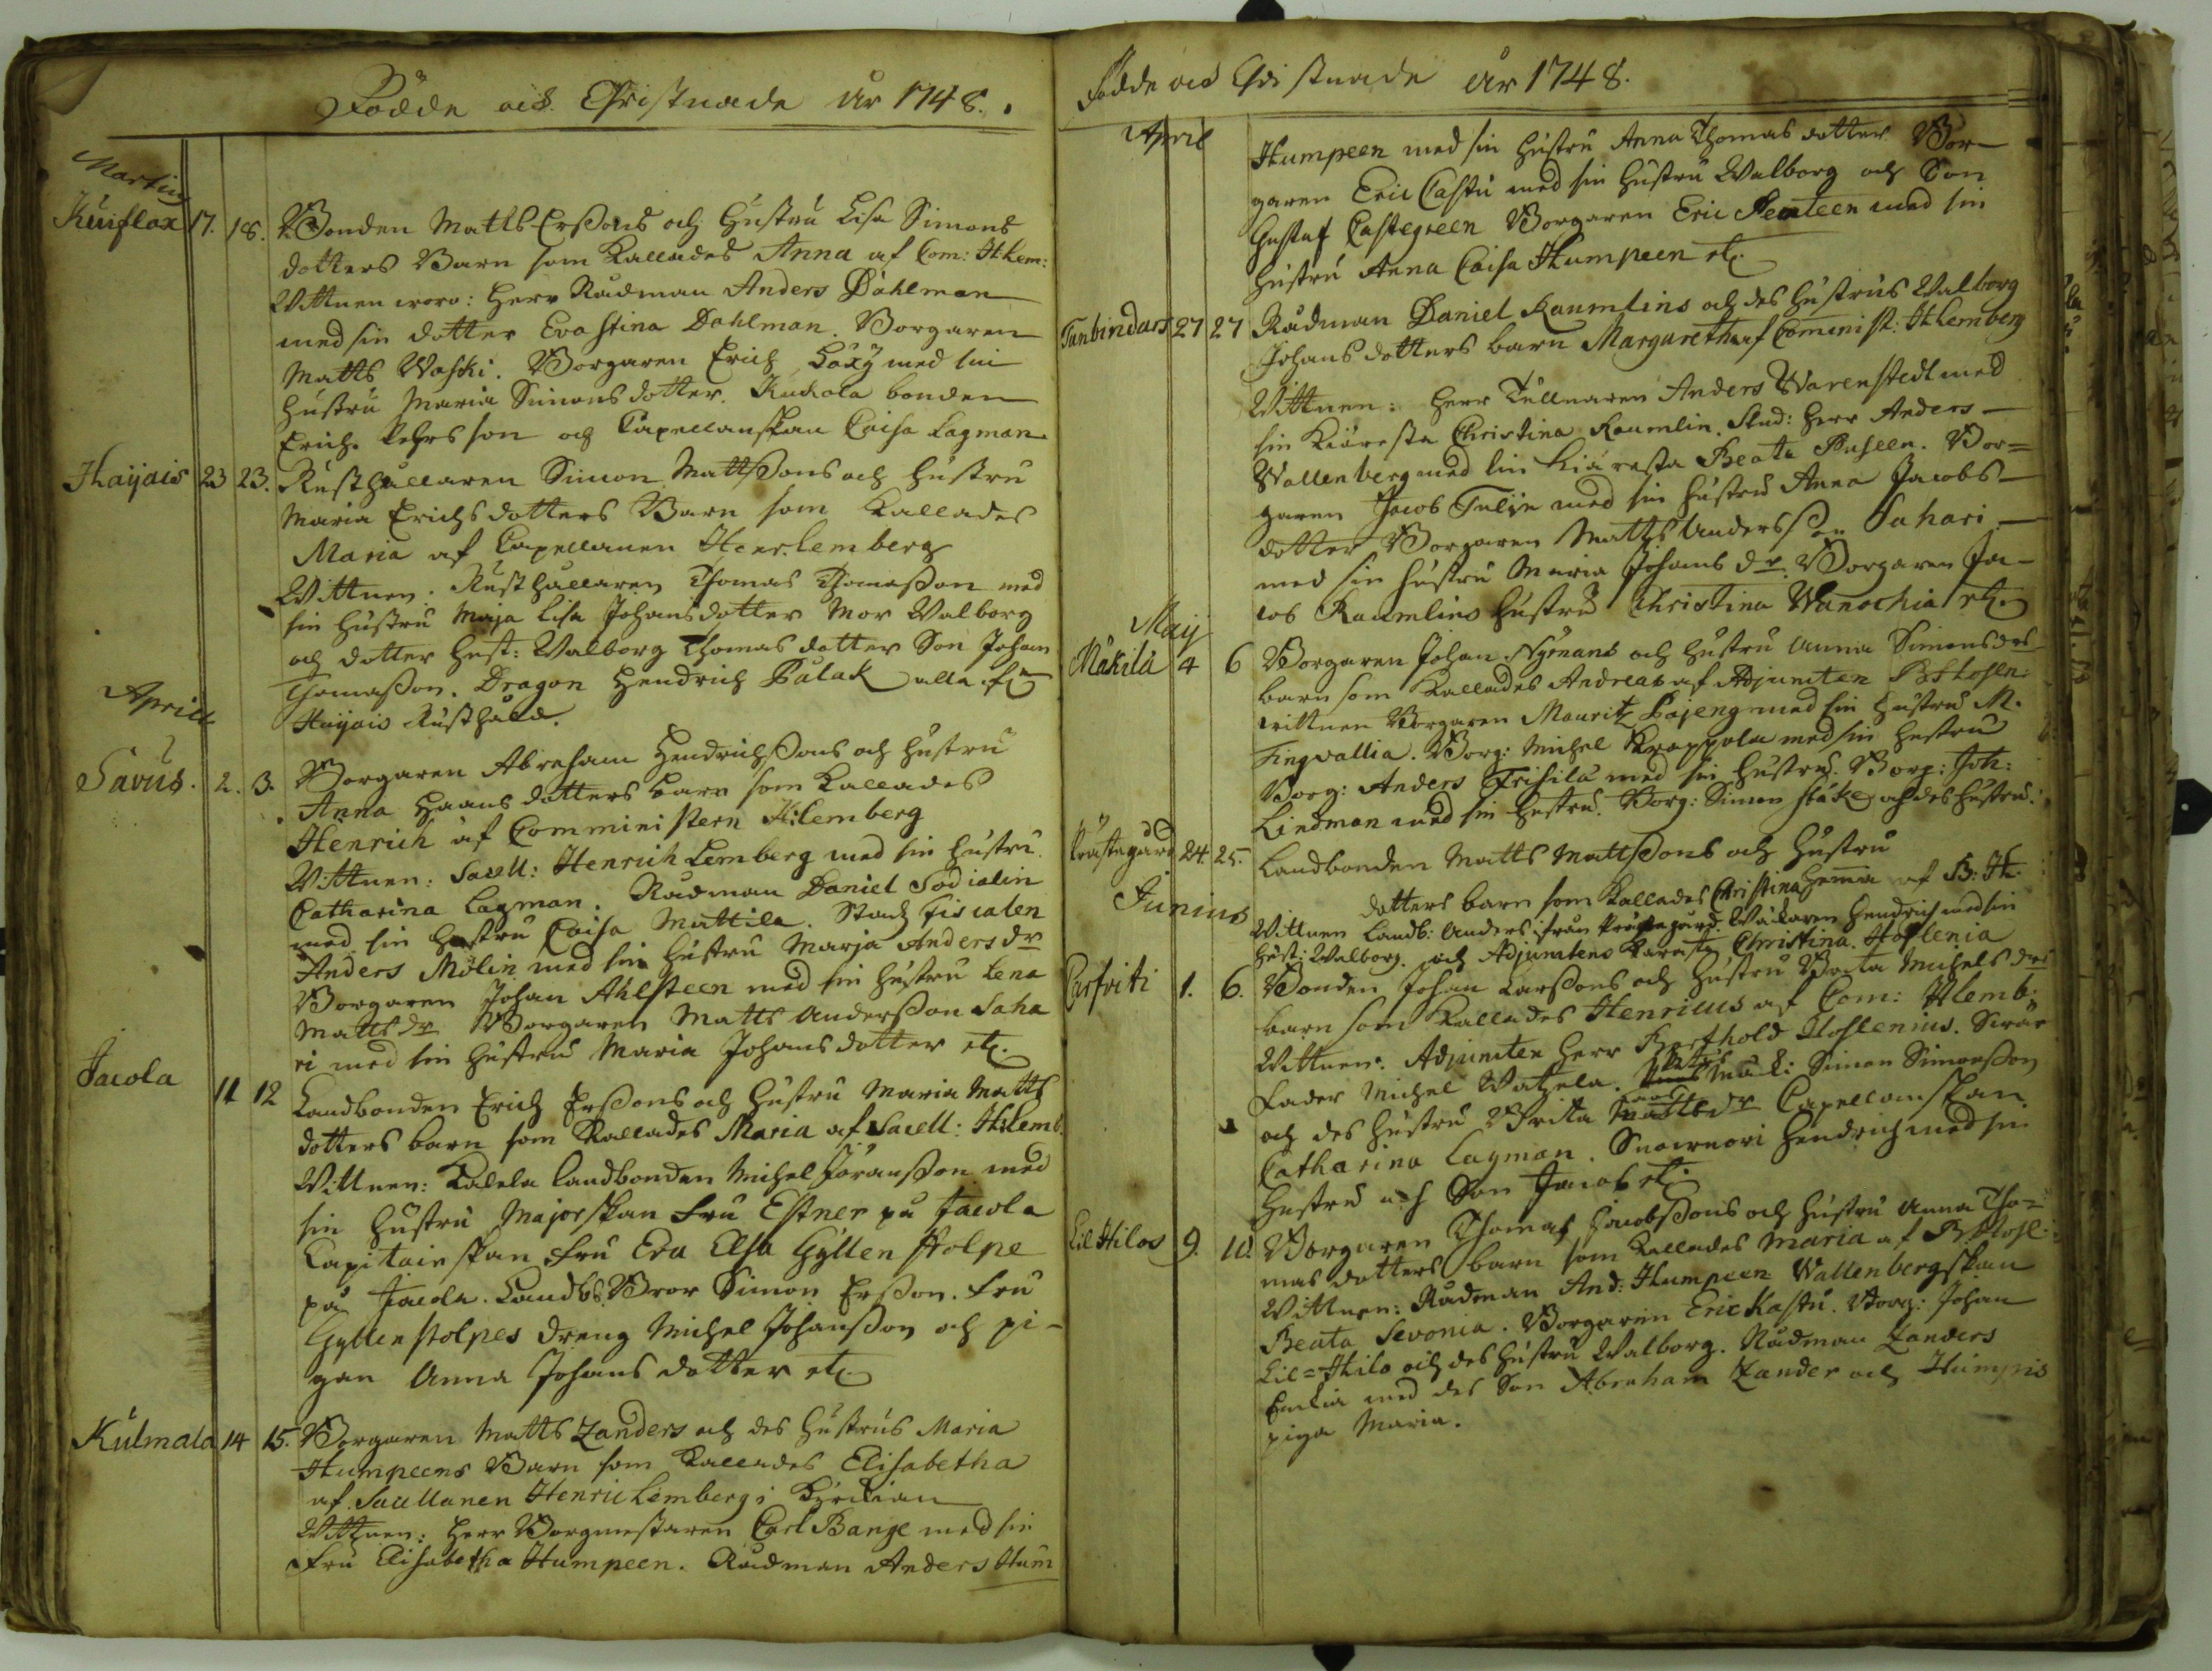 Födde och Christnade år 1748.
Martius
Kuiflax 17. 18. Bonden Matts Erssons och hustru Lisa Simons
dotters Barn som kallades Anna af Com: H: Lem:
Wittnen woro: Herr Rådman Anders Dahlman
med sin dotter Eva Stina Dahlman. Borgaren
Matts Waski. Borgaren Erich med sin
hustru Maria Simons dotter. bonden
Erich Pehrs son och Capellanskan Caisa Lagman
Haijais 23 23. Rusthållaren Simon Mattssons och hustru
Maria Erichs dotters Barn som kallades
Maria af Capellanen Henr. Lemberg
Wittnen. Rusthållaren Thomas Thomasson med
sin hustru Maja Lisa Johansdotter Mor Walborg
och dotter hust: Walborg Thomas dotter Son Johan
Thomasson. Dragon Hendrich Palak alla fr
Haijais Rusthåld.
Aprill
Savus. 2. 3. Borgaren Abraham Hendrichssons och hustru
Anna Hans dotters barn som kallades
Henrich af Comministern H: Lemberg
Wittnen: Sacell: Henrich Lemberg med sin hustru
Catharina Lagman. Rådman Daniel Sodialin
med sin hustru Caisa Mattila. Stads fiscalen
Anders Molin med sin hustru Marja Anders dr
Borgaren Johan Ahlsteen med sin hustru Lena
Matts dr Borgaren Matts Andersson Saha
ri med sin hustru Maria Johans dotter etc.
Jacola 11 12 Landbonden Erich Erssons och hustru Maria Matts
dotters barn som kallades Maria af Sacell: H: Lemb.
Wittnen: landbonden Michel Göransson med
sin hustru Majorskan Fru Estner på Jacola
Capitainskan Fru Eva Elsa Gyllenstolpe
på Jacola. Landb: Bror Simon Ersson. Fru
Gyllenstolpes dreng Michel Johansson och pi-
gan Anna Johans dotter etc.
Kulmala 14 15. Borgaren Matts Zanders och des hustrus Maria
Humpeens Barn som kallades Elisabetha
af Sacellanen Henric Lemberg i Kyrckian
Wittnen: Herr Borgmestaren Carl Bange med sin
Fru Elisabetha Humpeen. Rådman Anders Hum
Födde och Christnade år 1748.
April
Humpeen med sin hustru Anna Thomas dotter Bor-
garen Eric Castu med sin hustru Walborg och Son
Gustaf Castegreen Borgaren Eric med sin
hustru Anna Caisa Humpeen etc.
Tunbindars 27 27 Rådman Daniel Raumlins och des hustrus Walborg
Johans dotters barn Margareth af Comminist: H: Lemberg
Wittnen: Herr Tullnaren Anders Warenstedt med
sin Kiäresta Christina Raumlin. Stud: Herr Anders
Wallenberg med sin Kiäresta Beata Bor=
garen Jacob Tulin med sin hustru Anna Jacobs
dotter Borgaren Matts Andersson Sahari
med sin hustru Maria Johans dr. Borgaren Ja-
cob Raumlins hustru Christina Wanochia etc.
Maij
Mäkilä 4 6 Borgaren Johan Nymans och hustru Anna Simons drs
barn som kallades Andreas af Adjuncten B Hoslen:
wittnen Borgaren Mauritz Pajeng med sin hustru M.
Tingvallia. Borg: Michel Krappola med sin hustru
Borg: Anders Frisila med sin hustru. Borg: Joh:
Lindman med sin hustru. Borg: Simon Ståke och des hustru.
Prästegård 24. 25. Landbonden Matts Mattssons och hustru
dotters barn som kallades Christina hemma af B: H.
Junius
Wittnen Landb: Anders från Prästegård. Wäckaren Hendrich med sin
hust: Walborg. och Adjunctens Käresta Christina Hoslenia
1. 6. Bonden Johan Larssons och hustru Brita Michels drs
barn som kallades Henricus af Com: H Lemb:
Wittnen. Adjuncten Herr Barthold Hoslenius. Swär
Fader Michel Watzela. Simon Simonsson
och des hustru Brita Matts dr Capellanskan
Catharina Lagman. Hendrich med sin
hustru och Son Jacob etc.
Lil Hilos 9. 10. Borgaren Thomas Jacobssons och hustru Anna Tho=
mas dotters barn som kallades Maria af B. Hosl:
Wittnen: Rådman And: Humpeen Wallenbergskan
Beata Sevonia. Borgaren Eric Kastu. Borg: Johan
Lil=Hilo och des hustru Walborg. Rådman Zanders
Enckia med des Son Abraham Zander och Humpis
piga Maria.